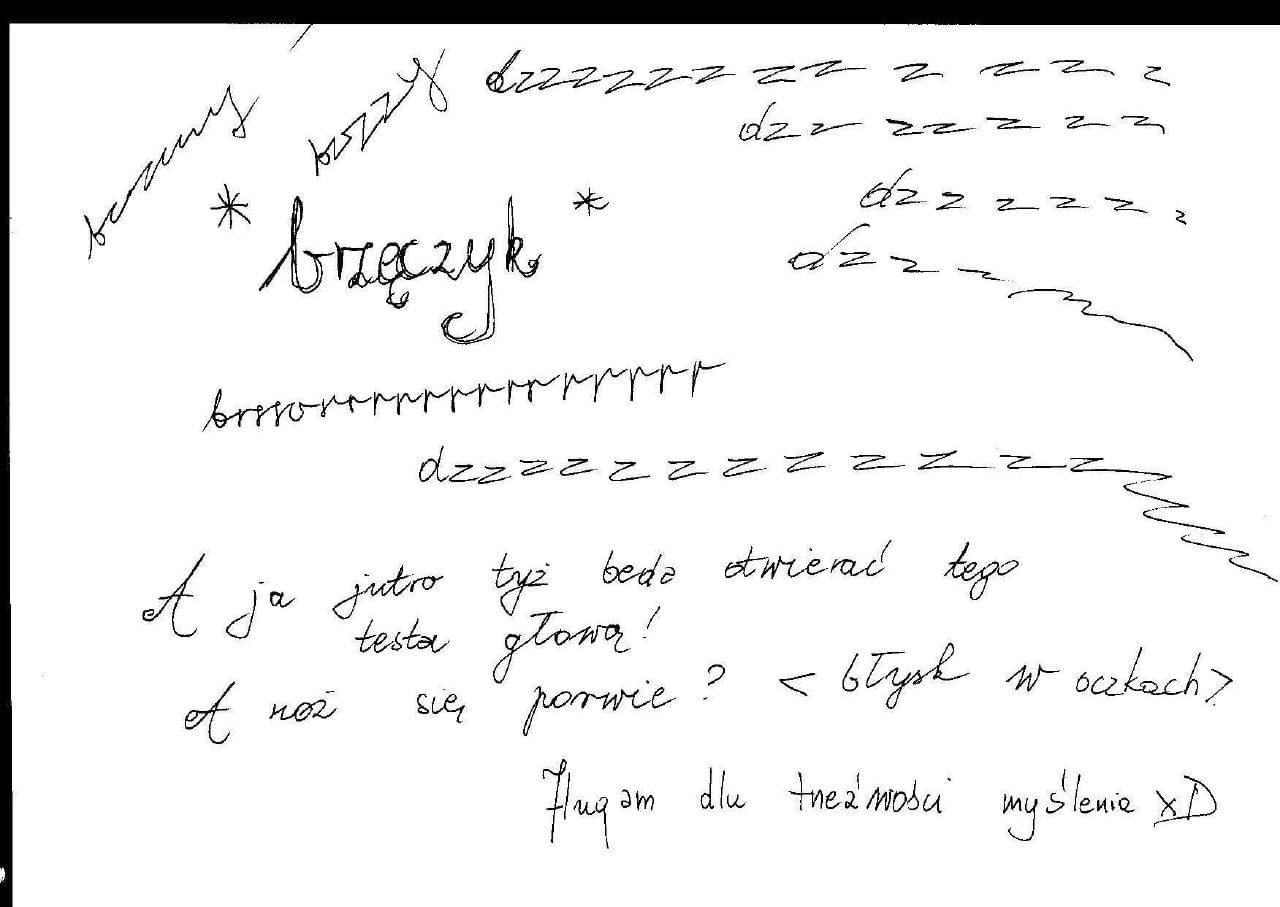 brzmy
brzzy
dzzzzzzz zz z z z z z
dzz zz z z z
* brzęczyk *
dzz z z z z z
dzzz
brrrrorrrrrrrrrrrrrr
dzzzzzzzzzzzzz
A ja jutro tyż beda otwierać tego
testa głową!
A noż się porwie? < błysk w oczkach>
dlu trzeźwości myślenia xD